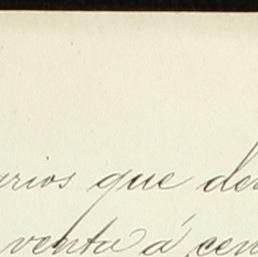 arios que de
venta á cen